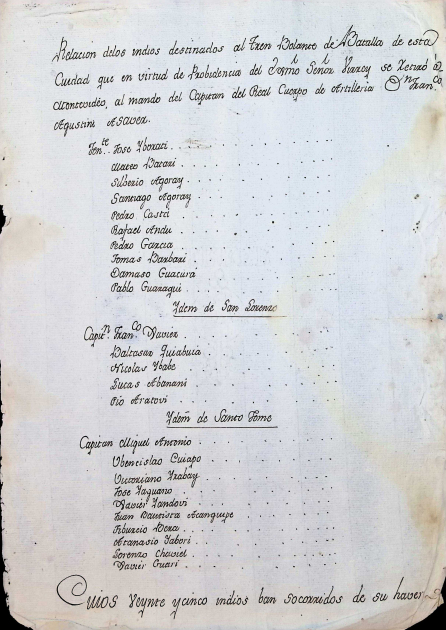 Relacion delos indios destinados al Tren Bolante de Batalla de esta
Ciudad que en virtud de Probidencia del Señor Virrey se retiró á
Montevideo, al mando del Capitan del Real Cuerpo de Artilleria Dn Franco
Agustin
Tente Jose Yborati
Mateo Batari
Silberio Agoray
Santiago Agoray
Pedro Casta
Rafael Andu
Pedro Garcia
Tomas Barbari
Damaso Guacura
Pablo Guaragui
Ydem de San Lorenzo
Capitn Franco Xavier
Baltasar Quiabuia
Nicolas Ybabe
Lucas Abanani
Pio Aratovi
Ydem de Santo Tome
Capitan Miguel Antonio
Ubencislao Cuiapo
Victoriano Yrabay
Jose Yaguano
Xavier Yandovi
Juan Bautista Acanguipe
Tiburcio Vera
Atanasio Tabori
Lorenzo Chaviel
Xavier Guari
Cuios Veynte ycinco indios ban socorridos de su haver